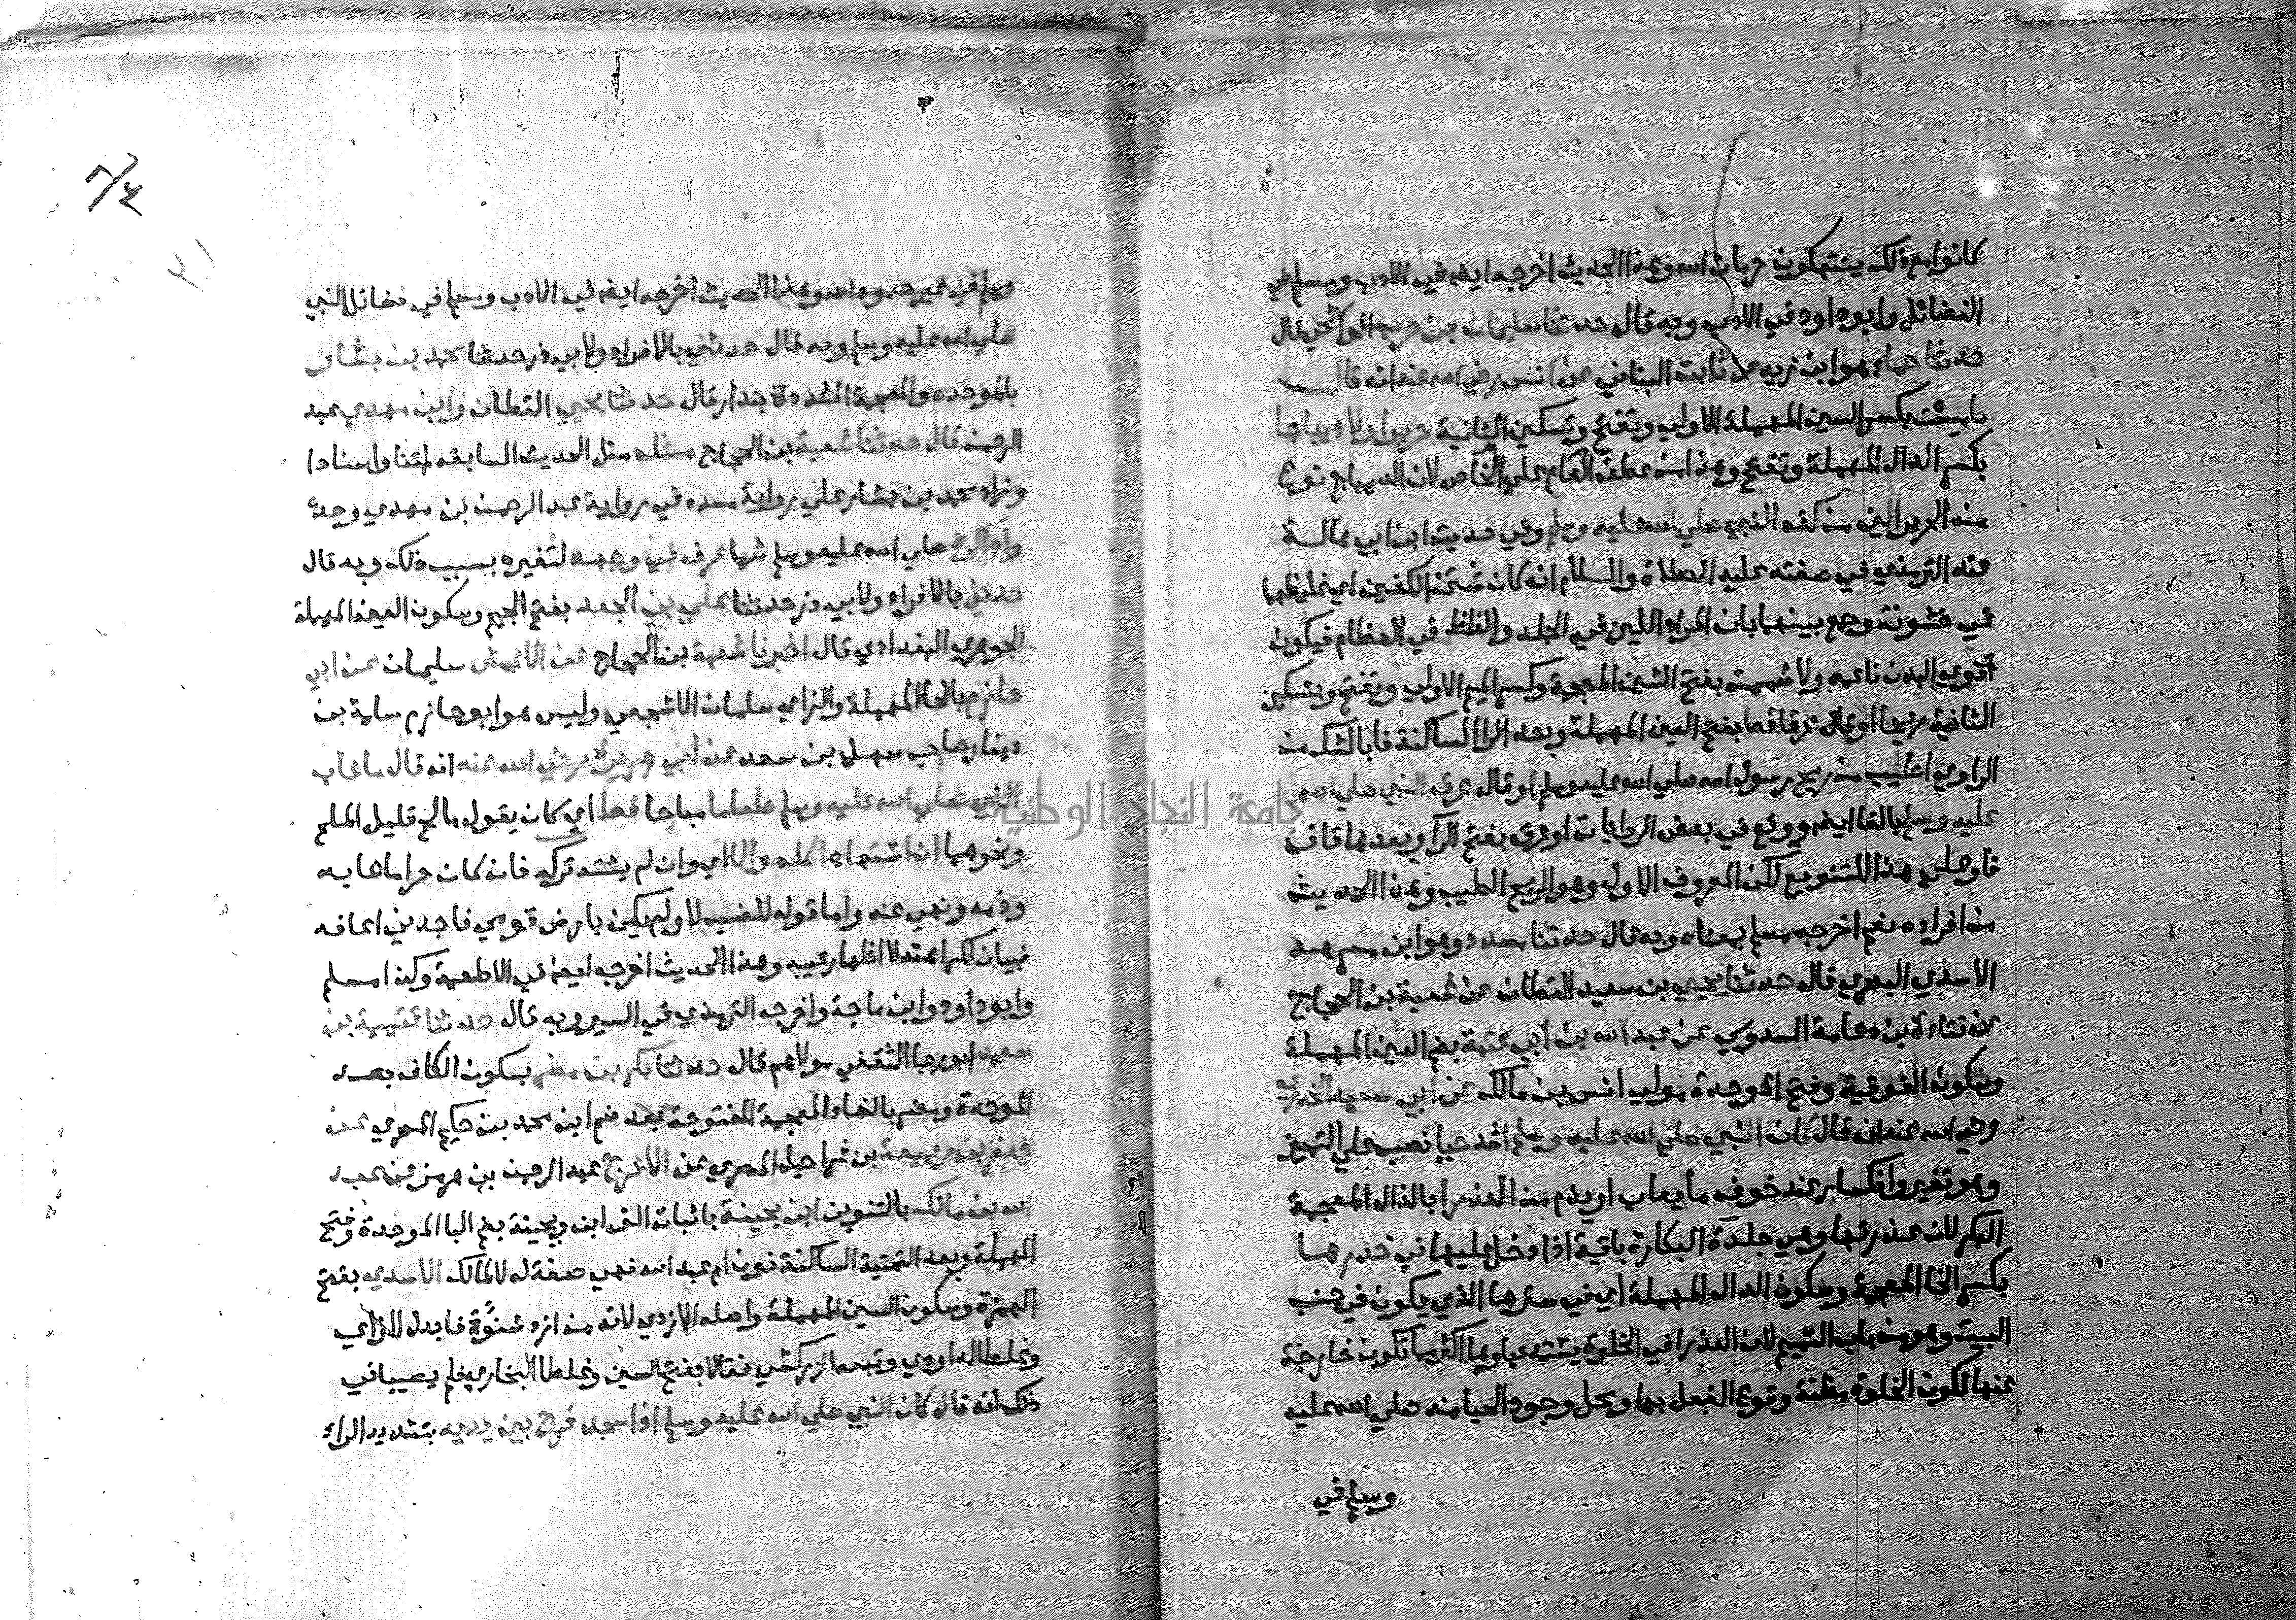 كانوا مع ذلك ينتهكون حرمات الله وهذا الحديث اخرجه ايضا في الادب ومسلم في
الفضائل وابو داود في الادب وبه قال حدثنا سليمان بن حرب الواشحي قال
حدثنا حماد هو ابن زيد عن ثابت البناني عن انس رضي الله عنه انه قال
ما مسست بكسر السين المهملة الاولى وتفتح وتسكين الثانية حريرا ولا ديباجا
بكسر الدال المهملة وتفتح وهذا من عطف العام على الخاص لان الديباج نوع
من الحرير الين من كف النبي صلي الله عليه وسلم وفي حديث ابن ابي هالة
عند الترمذي في صفته عليه الصلاة والسلام انه كان شثن الكفين اي غليظهما
في خشونة وجمع بينهما بان المراد اللين في الجلد والغلظ في العظام فيكون
قوي البدن ناعمه ولا شممت بفتح الشين المعجمة وكسر الميم الاولى وتفتح وتسكين
الثانية ريحا او قال عرفا قط بفتح العين المهملة وبعد الرا الساكنة فا بالشك من
الراوي اطيب من ريح رسول الله صلي الله عليه وسلم او قال عرف النبي صلي الله
عليه وسلم بالفا ايضا ووقع في بعض الروايات او عرق بفتح الرا وبعدها قاف
فاو علي هذا للتنويع لكن المعروف الاول وهو الريح الطيب وهذا الحديث
من افراده نعم اخرجه مسلم بمعناه وبه قال حدثنا مسدد وهو ابن مسرهد
الاسدي البصري قال حدثنا يحيي بن سعيد القطان عن شعبة بن الحجاج
عن قتادة بن دعامة السدوسي عن عبد الله بن ابي عتبة بضم العين المهملة
وسكون الفوقية وفتح الموحدة مولي انس بن مالك عن ابي سعيد الخدري
رضي الله عنه انه قال كان النبي صلي الله عليه وسلم اشد حيا نصب علي التمييز
وهو تغير وانكسار عند خوف ما يعاب او يذم من العذرا بالذال المعجمة
البكر لان عذرتها وهي جلدة البكارة باقية اذا دخل عليها في خدرها
بكسر الخا المعجمة وسكون الدال المهملة اي في سترها الذي يكون في جنب
البيت وهو من باب التتميم لان العذرا في الخلوة يشتد حياوها اكثر مما تكون خارجة
عنها لكون الخلوة مظنة وقوع الفعل بها ومحل وجود الحيا منه صلي الله عليه
وسلم في
٨/٤
٣١
وسلم في غير حدود الله وهذا الحديث اخرجه ايضا في الادب ومسلم في فضائل النبي
صلي الله عليه وسلم وبه قال حدثني بالافراد ولابي ذر حدثنا محمد بن بشار
بالموحدة والمعجمة المشددة بندار قال حدثنا يحيي القطان وابن مهدي عبد
الرحمن قال حدثنا شعبة بن الحجاج مثله مثل الحديث السابق متنا واسنادا
وزاد محمد بن بشار علي رواية مسدد في رواية عبد الرحمن بن مهدي وحده
واذا كره صلي الله عليه وسلم شيا عرف في وجهه لتغيره بسبب ذلك وبه قال
حدثني بالافراد ولابي ذر حدثنا علي بن الجعد بفتح الجيم وسكون العين المهملة
الجوهري البغدادي قال اخبرنا شعبة بن الحجاج عن الاعمش سليمان عن ابي
حازم بالحا المهملة والزاي سلمان الاشجعي وليس هو ابو حازم سلمة بن
دينار صاحب سهل بن سعد عن ابي هريرة رضي الله عنه انه قال ما عاب
النبي صلي الله عليه وسلم طعاما مباحا قط اي كان يقول مالح قليل الملح
ونحوهما ان اشتهاه اكله والا اي وان لم يشته تركه فان كان حراما عابه
وذمه ونهي عنه واما قوله للضب لا ولم يكن بارض قومي فاجدني اعافه
فبيان لكراهته لا اظهار عيبه وهذا الحديث اخرجه ايضا في الاطعمة وكذا مسلم
وابو داود وابن ماجة واخرجه الترمذي في السير وبه قال حدثنا قتيبة بن
سعيد ابو رجا الثقفي مولاهم قال حدثنا بكر بن مضر بسكون الكاف بعد
الموحدة ومضر بالضاد المعجمة المفتوحة بعد ضم ابن محمد بن حكيم المصري عن
جعفر بن ربيعة بن شراحيل المصري عن الاعرج عبد الرحمن بن هرمز عن عبد
الله بن مالك بالتنوين ابن بحينة باثبات الف ابن وبحينة بضم البا الموحدة وفتح
المهملة وبعد التحتية الساكنة نون ام عبد الله فهي صفة له لا لمالك الاسدي بفتح
الهمزة وسكون السين المهملة واصله الازدي لانه من ازد شنوة فابدل الزاي
وغلط الداودي وتبعه الزركشي فقالا بفتح السين وغلطا البخاري فلم يصيبا في
ذلك انه قال كان النبي صلي الله عليه وسلم اذا سجد فرج بين يديه بتشديد الراء
جامعة النجاح الوطنية